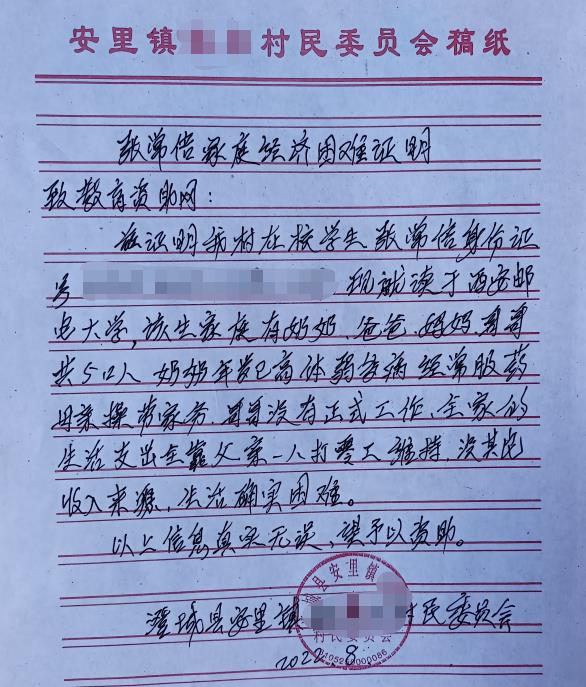 安里镇 村民委员会稿纸
家庭经济困难证明
致教育资助网：
兹证明我村在校学生 身份证
号 现就读于西安邮
电大学，该生家庭有奶奶、爸爸、妈妈、哥哥
共5口人 奶奶年岁已高体弱多病 经常服药
母亲操劳家务，哥哥没有正式工作，全家的
生活支出全靠父亲一人打零工维持，没其它
收入来源，生活确实困难。
以上信息真实无误，望予以资助。
澄城县安里镇 村民委员会
2022.8.
县安里镇
村民委员会